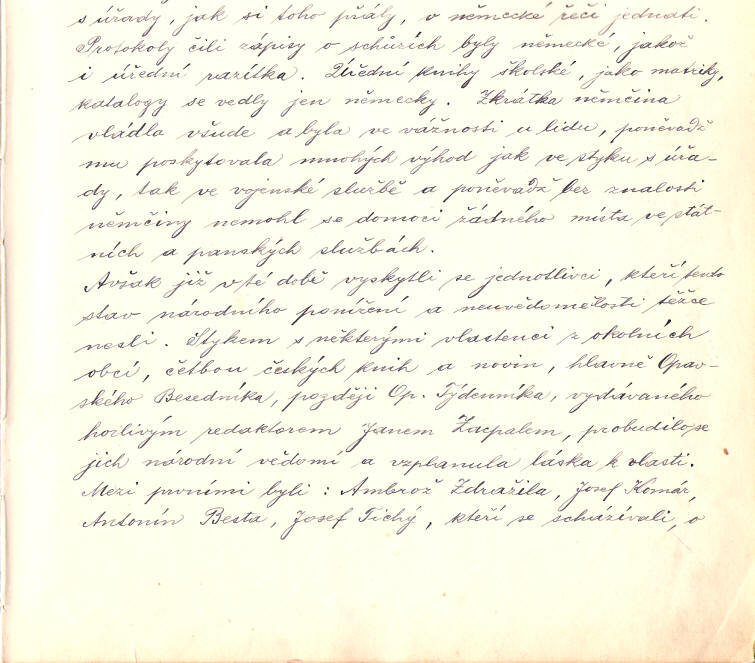 s úřady, jak si toho přály, v německé řeči jednati.
Protokoly čili zápisy o schůzích byly německé, jakož
i úřední razítka. Úřední knihy školské, jako matriky,
katalogy se vedly jen německy. Zkrátka němčina
vládla všude a byla ve vážnosti u lidu, poněvadž
mu poskytovala mnohých výhod jak ve styku s úřa-
dy, tak ve vojenské službě a poněvadž bez znalosti
němčiny nemohl se domoci žádného místa ve stát-
ních a panských službách.
Avšak již v té době vyskytli se jednotlivci, kteří tento
stav národního ponížení a neuvědomělosti těžce
nesli. Stykem s některými vlastenci z okolních
obcí, četbou českých knih a novin, hlavně Opav-
ského Besedníka, později Op. Týdenníka, vydávaného
horlivým redaktorem Janem Zacpalem, probudilo se
jich národní vědomí a vzplanula láska k vlasti.
Mezi prvními byli: Ambrož Zdražila, Josef Komár,
Antonín Besta, Josef Tichý, kteří se scházívali, o